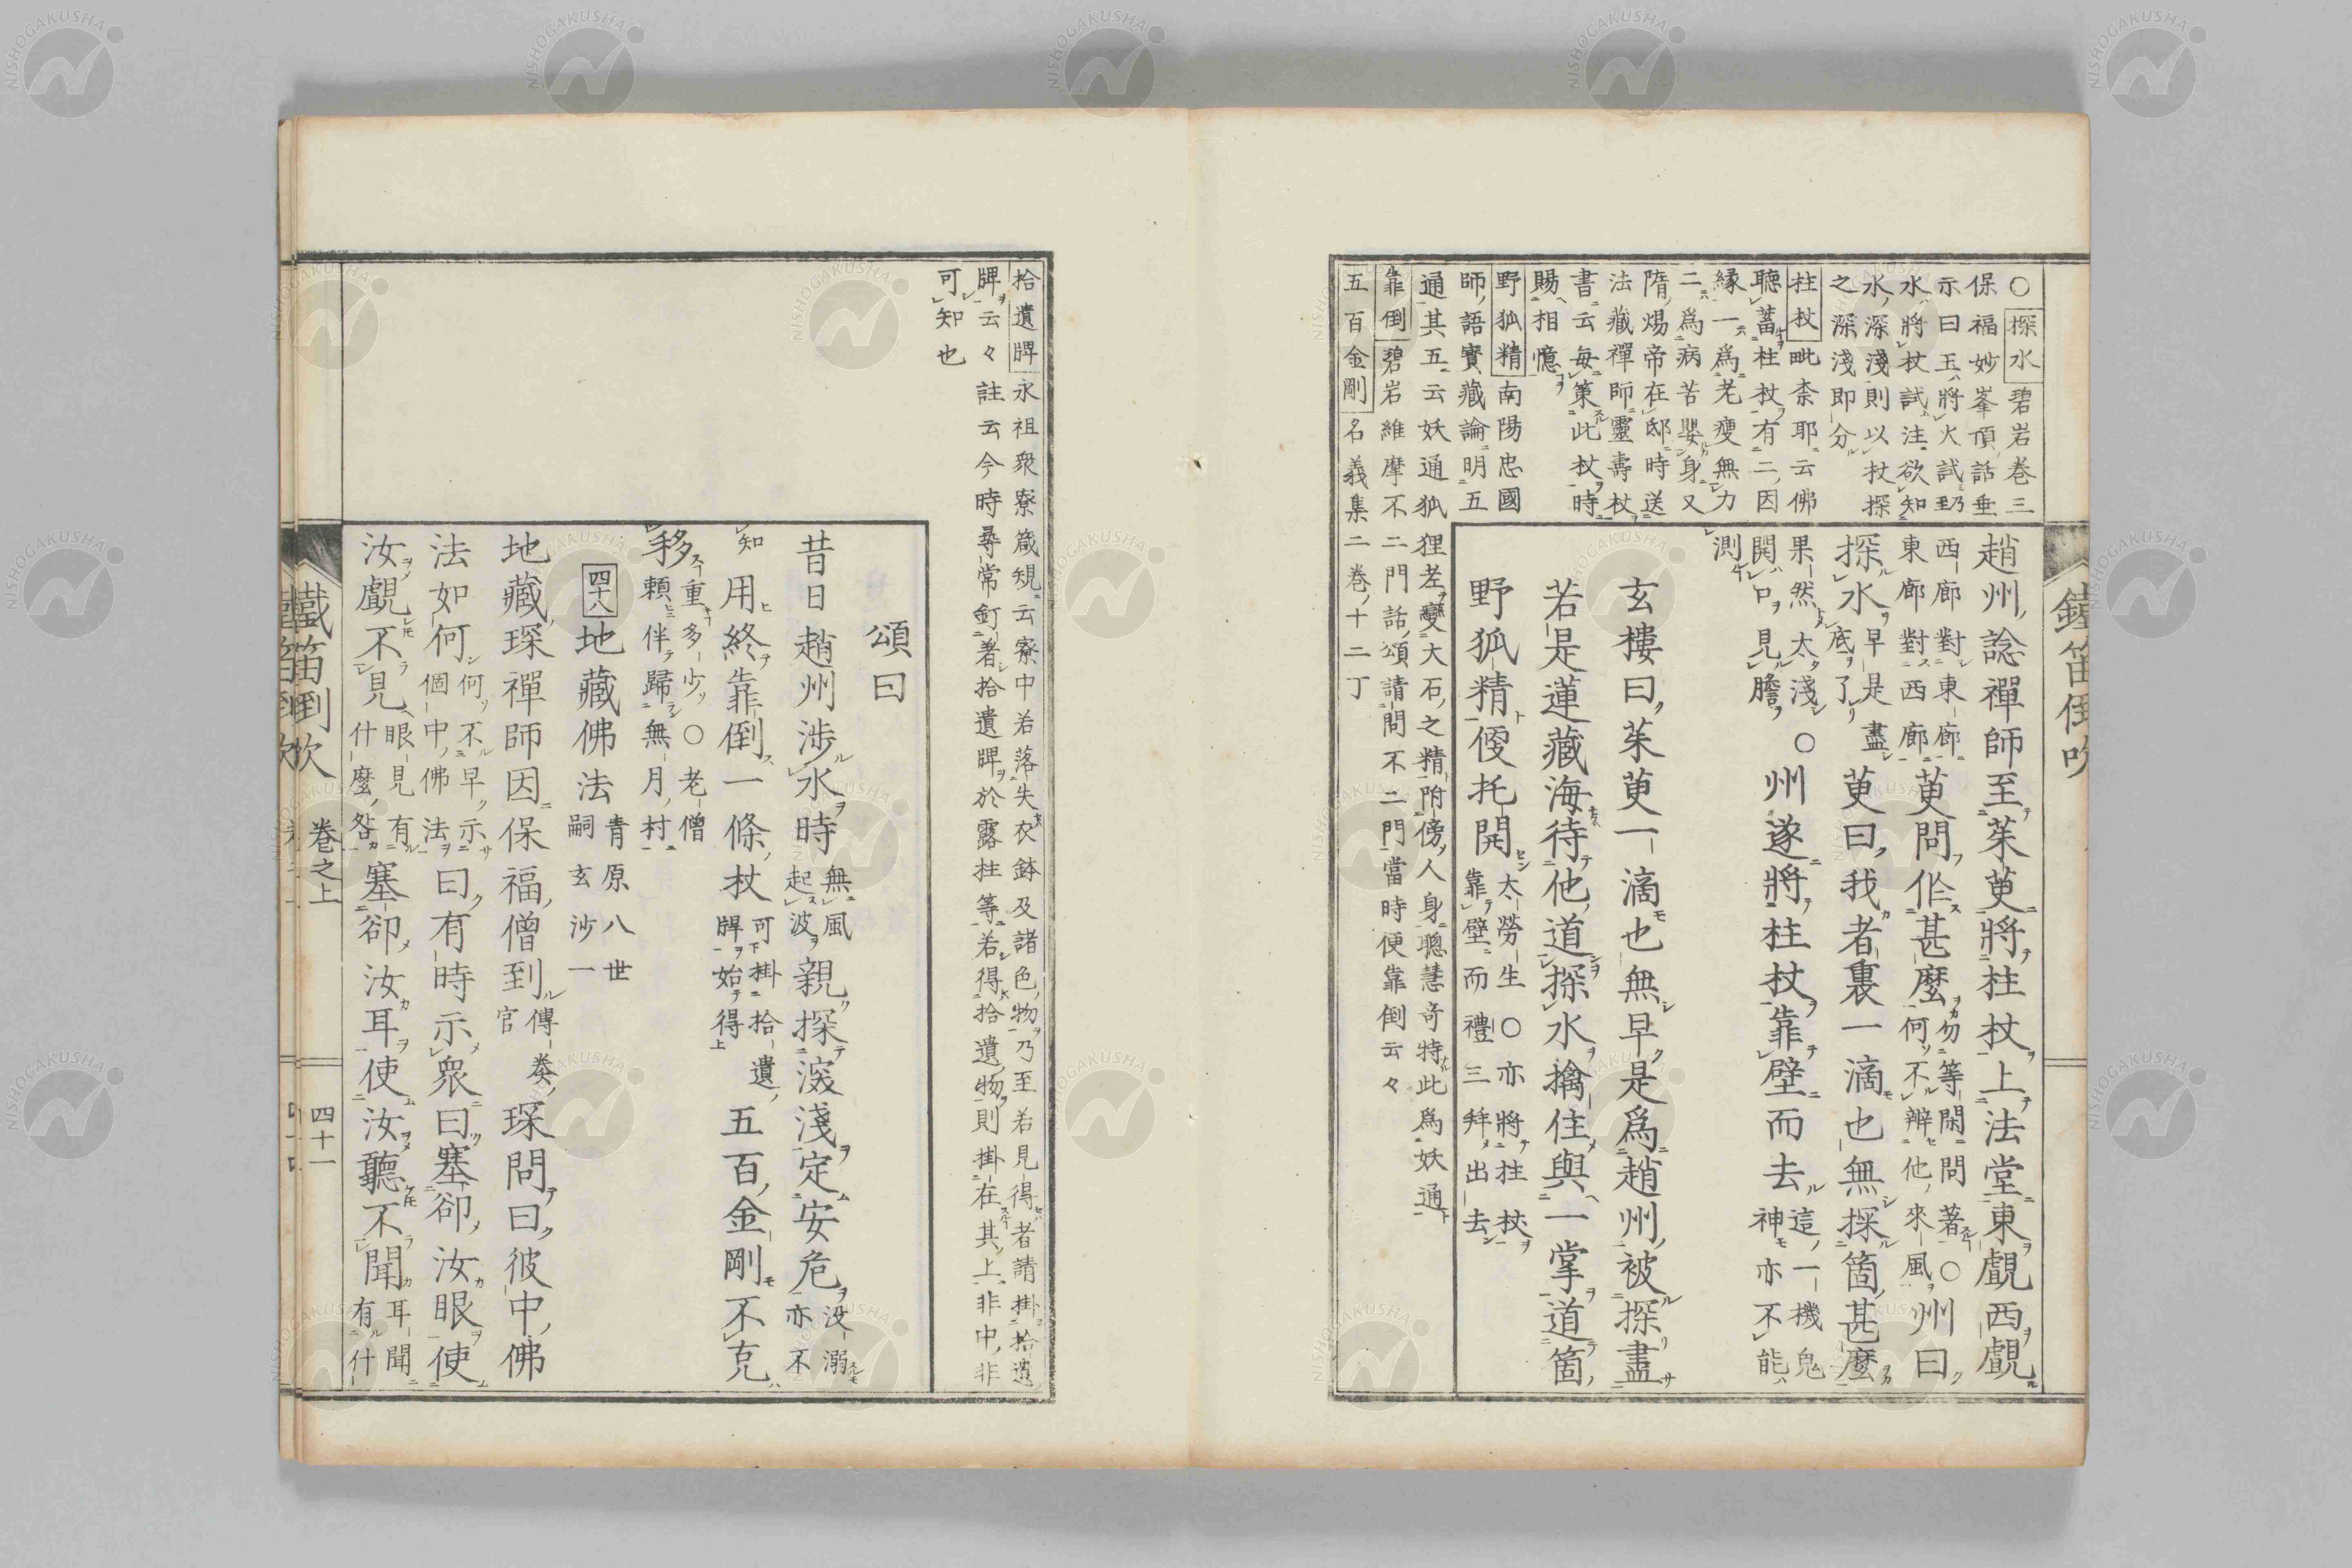 鐵笛倒吹
○探水碧岩巻三
保福妙峯頂話垂
示曰玉將火試
水將杖試注欲知
水深淺則以杖探
之深淺即分
柱杖毗柰耶云佛
聽蓄柱杖有二因
縁一爲老瘦無力
二爲病苦嬰身又
隋煬帝在邸時送
法藏禪師靈壽杖
書云毎策此杖時
賜相憶
野狐精南陽忠國
師語實藏論明五
通其五云妖通狐狸老變大石之精附傍人身聰慧奇特此爲妖通
靠倒碧岩維摩不二門話頌請問不二門當時便靠倒云々
五百金剛名義集二巻十二丁
趙州諗禪師至茱萸將柱杖上法堂東覷西覷
西廊對東廊
東廊對西廊
萸問作甚麼
勿等閑問著○
何不辨他來風
州曰
探水
早是盡
底了
萸曰我者裏一滴也無探箇甚麼
果然太淺
開口見膽
測
○州遂將柱杖靠壁而去
這一機鬼
神亦不能
玄樓曰茱萸一滴也無早是爲趙州被探盡
若是蓮藏海待他道探水擒住與一掌道箇
野狐精便托開
太勞生○亦將拄杖
靠壁而禮三拜出去
拾遺牌永祖衆寮箴規云寮中若落失衣鉢及諸色物乃至若見得者請掛拾遺
牌云々註云今時尋常釘著拾遺牌於露柱等若得拾遺物則掛在其上非中非
可知也
頌曰
昔日趙州渉水時
無風
起波
親探深淺定安危
没溺
亦不
知
用終靠倒一條杖
可掛拾遺
牌始得
五百金剛不克
移
重多少○老僧
頼伴歸無月村
四十八
地藏佛法
青原八世
嗣玄沙一
地藏琛禪師因保福僧到
傳
官
琛問曰彼中佛
法如何
何不早示
個中佛法
曰有時示衆曰塞卻汝眼使
汝覷不見
眼見有
什麼咎
塞卻汝耳使汝聽不聞
耳聞
有什
鐵笛倒吹
巻之上
四十一